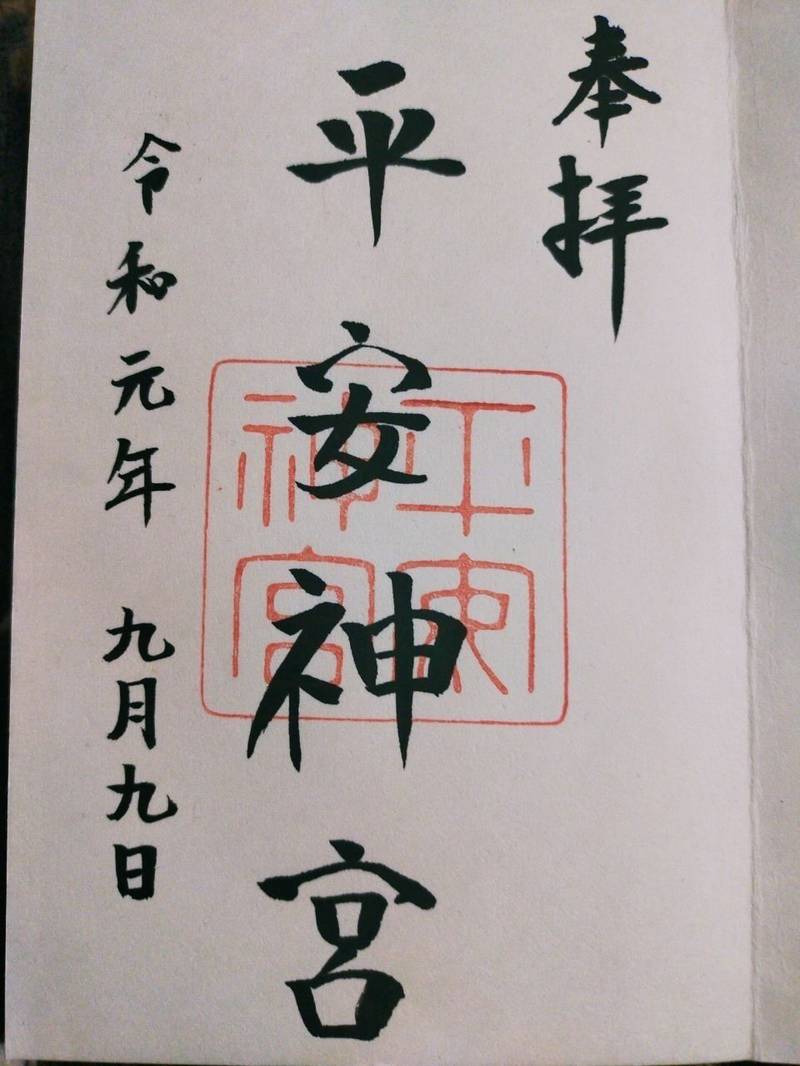 奉拝
平安神宮
平安神宮
令和元年 九月九日